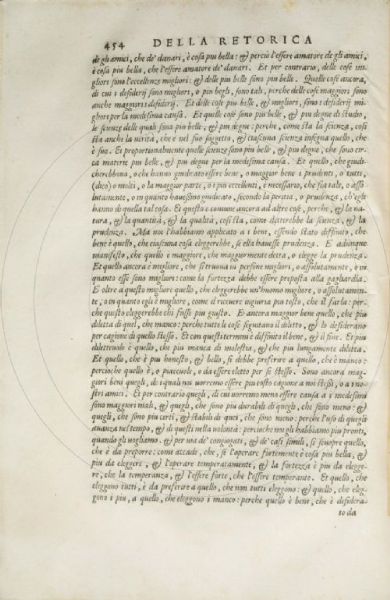 454 DELLA RETORICA
de gli amici, che de' danari, è cosa piu bella: & perciò l'essere amatore de gli amici,
è cosa piu bella, che l'essere amatore de' danari. Et per contrario, delle cose mi-
gliori sono l'eccellenze migliori: & delle piu belle sono piu belle. Quelle cose ancora,
di cui i desiderij sono migliori, o piu begli, sono tali, perche delle cose maggiori sono
anche maggiori i desiderij. Et delle cose piu belle, & migliori, sono i desiderij mi-
gliori per la medesima causa. Et quelle cose sono piu belle, & piu degne di studio,
le scienze delle quali sono piu belle, & piu degne: perche, come stà la scienza, così
stà anche la verità, che è nel suo suggetto, & ciascuna scienza insegna quello, che
è suo. Et proportionalmente quelle scienze sono piu belle, & piu degne, che sono cir-
ca materie piu belle, & piu degne per la medesima causa. Et quello, che giudi-
cherebbono, o che hanno giudicato essere bene, o maggior bene i prudenti, o tutti,
(dico) o molti, o la maggior parte, o i piu eccellenti, è necessario, che sia tale, o asso-
lutamente, o in quanto hauessino giudicato, secondo la perotia, o prudenza, ch'egli
hanno di quella tal cosa. Et questo è comune ancora ad altre cose, perche, & la na-
tura, & la quantità, & la qualità, così stà, come detterebbe la scienza, & la
prudenza. Ma noi l'habbiamo applicato a i beni, essendo stato diffinito, che
bene è quello, che ciascuna cosa eleggerebbe, s'ella hauesse prudenza. E adunque
manifesto, che quello è maggiore, che maggiormente detta, o elegge la prudenza.
Et quello ancora è migliore, che si truoua in persone migliori, o assolutamente, o in
quanto esse sono migliori: come la fortezza debbe essere preposta alla gagliardia.
E oltre a questo migliore quello, che eleggerebbe un'huomo migliore, o assolutamen-
te, o in quanto egli è migliore, come il riceuere ingiuria piu tosto, che il farla: per-
che questo eleggerebbe chi fosse piu giusto. Et ancora maggior bene quello, che piu
diletta di quel, che manco: perche tutte le cose seguitano il diletto, & lo desiderano
per cagione di quello stesso. Et con questi termini è diffinito il bene, & il fine. Et piu
diletteuole è quello, che piu manca di molestia, & che piu lungamente diletta.
Et quello, che è piu honesto, & bello, si debbe preferire a quello, che è manco:
percioche quello è, o piaceuole, o da essere eletto per se stesso. Sono ancora mag-
giori beni quegli, de i quali noi uorremo essere piu tosto cagione a noi stessi, o a i no-
stri amici. Et per contrario quegli, di cui uorremo meno essere causa a i medesimi
sono maggiori mali, & quegli, che sono piu durabili di quegli, che sono meno: &
quegli, che sono piu certi, & stabili di quei, che sono meno: perche l'uso di quegli
auanza nel tempo, & di questi nella uolontà: percioche noi gli habbiamo piu pronti,
quando gli uogliamo. & per una de' coniugati, & de' casi simili, si scuopre quello,
che è da preporre: come accade, che, se l'operare fortemente è cosa piu bella, &
piu da eleggere, che l'operare temperatamente, & la fortezza è piu da elegge-
re, che la temperanza, & l'essere forte, che l'essere temperante. Et quello, che
eleggono tutti, è da preferire a quello, che non tutti eleggono: & quello, che eleg-
gono i piu, a quello, che eleggono i manco: perche quello è bene, che è desidera-
to da